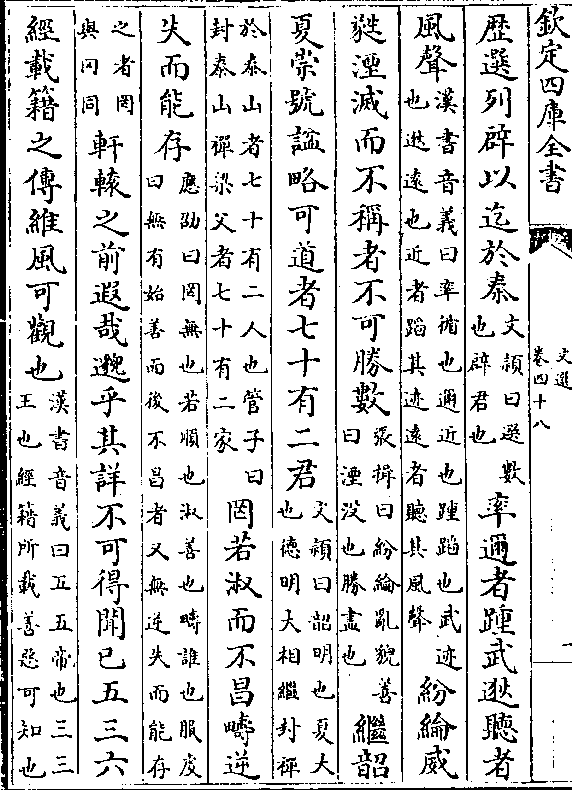 欽定四庫全書
文選
卷四十八
歴選列辟以迄於秦文頴曰選數也辟君也率邇者踵武逖聽者
風聲漢書音義曰率循也邇近也踵蹈也武迹也逖遠也近者蹈其迹遠者聽其風聲紛綸威
蕤湮滅而不稱者不可勝數張揖曰紛綸亂貌善曰湮没也勝盡也繼韶
夏崇號諡略可道者七十有二君文頴曰韶明也夏大也德明大相繼封禪
於泰山者七十有二人也管子曰封泰山禪梁父者七十有二家罔若淑而不昌疇逆
失而能存應劭曰罔無也若順也淑善也疇誰也服䖍曰無有始善而後不昌者又無逆失而能存
之者罔與冈同軒轅之前遐哉邈乎其詳不可得聞已五三六
經載籍之傳維風可觀也漢書音義曰五五帝也三三王也經籍所載善惡可知也